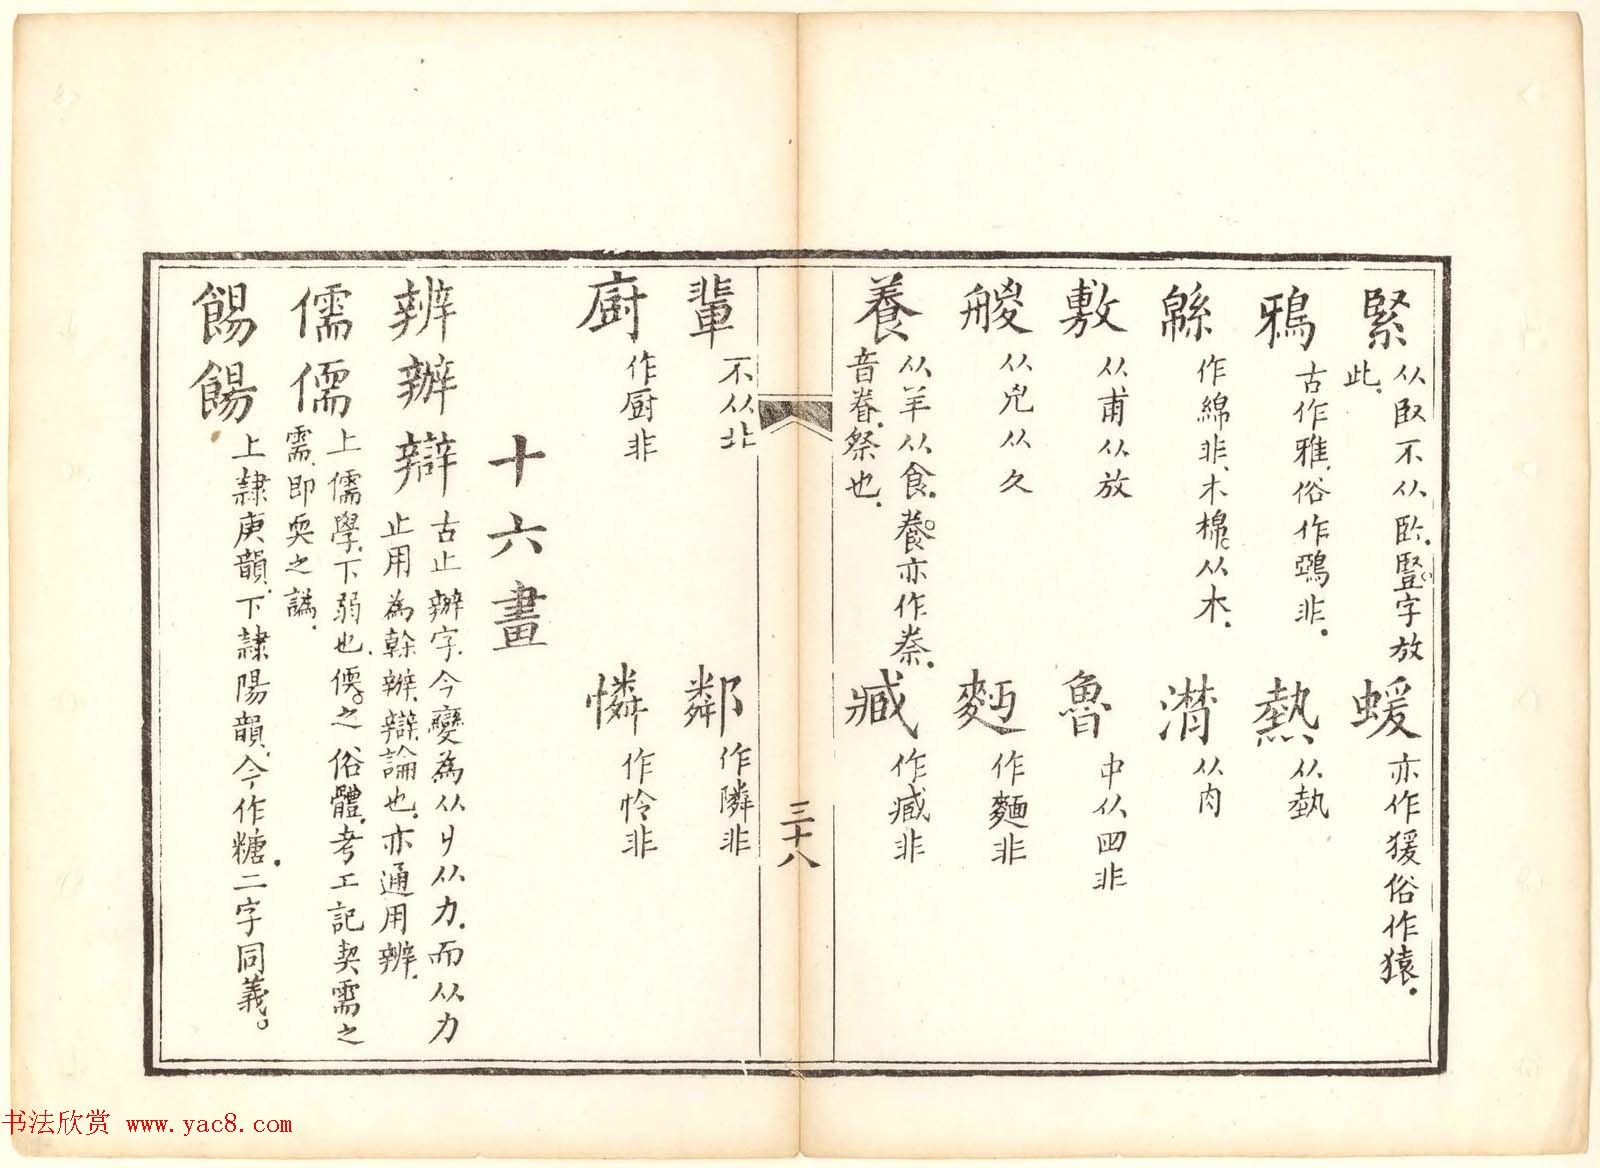 緊 从臤不从臥.豎字放
此.
蝯 亦作猨俗作猿.
鴉 古作雅.俗作鵶非.
熱 从埶
緜 作綿非.木棉从木.
潸 从肉
敷 从甫从放
魯 中从四非
艐 从凫从夂
麪 作麵非
養 从羊从食.養亦作䅈.
音眷.祭也.
臧 作臧非
三十八
輩 不从北
鄰 作隣非
廚 作厨非
憐 作怜非
十六畫
辨辦辯 古止辦字.今變為从刂从力.而从力
止用為幹辦.辯論也.亦通用辨.
儒偄 上儒學.下弱也.偄之俗體.考工記契需之
需.即耎之譌.
餳餳 上隷庚韻.下隷陽韻.今作糖.二字同義。
书法欣赏 www.yac8.com